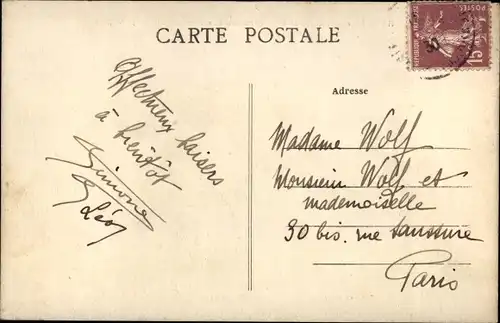 CARTE POSTALE
Affectueux baisers
à bientôt
Simone
Léo
Adresse
Madame Wolf
Monsieur Wolf et
mademoiselle
30 bis. rue Saussure
Paris
15